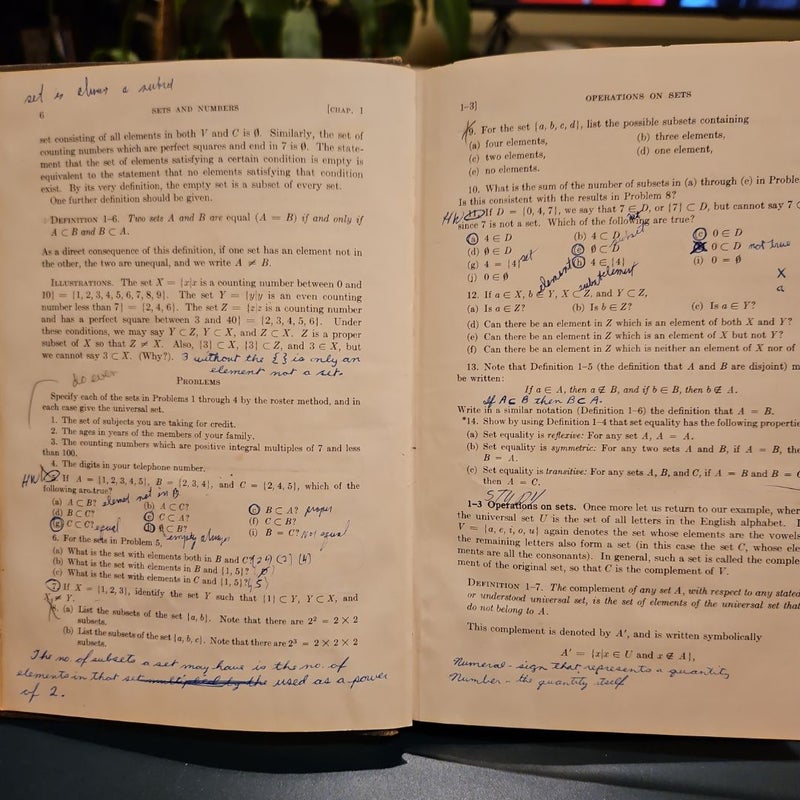 set is always a subset
6 SETS AND NUMBERS [CHAP. 1
set consisting of all elements in both V and C is ∅. Similarly, the set of
counting numbers which are perfect squares and end in 7 is ∅. The state-
ment that the set of elements satisfying a certain condition is empty is
equivalent to the statement that no elements satisfying that condition
exist. By its very definition, the empty set is a subset of every set.
One further definition should be given.
DEFINITION 1–6. Two sets A and B are equal (A = B) if and only if
A ⊂ B and B ⊂ A.
As a direct consequence of this definition, if one set has an element not in
the other, the two are unequal, and we write A ≠ B.
ILLUSTRATIONS. The set X = {x|x is a counting number between 0 and
10} = {1, 2, 3, 4, 5, 6, 7, 8, 9}. The set Y = {y|y is an even counting
number less than 7} = {2, 4, 6}. The set Z = {z|z is a counting number
and has a perfect square between 3 and 40} = {2, 3, 4, 5, 6}. Under
these conditions, we may say Y ⊂ Z, Y ⊂ X, and Z ⊂ X. Z is a proper
subset of X so that Z ≠ X. Also, {3} ⊂ X, {3} ⊂ Z, and 3 ∈ X, but
we cannot say 3 ⊂ X. (Why?). 3 without the { } is only an
element not a set.
PROBLEMS
Specify each of the sets in Problems 1 through 4 by the roster method, and in
each case give the universal set.
1. The set of subjects you are taking for credit.
2. The ages in years of the members of your family.
3. The counting numbers which are positive integral multiples of 7 and less
than 100.
4. The digits in your telephone number.
HW If A = {1, 2, 3, 4, 5}, B = {2, 3, 4}, and C = {2, 4, 5}, which of the
following are true?
(a) A ⊂ B? element not in B (b) A ⊂ C? (c) B ⊂ A? proper
(d) B ⊂ C? (e) C ⊂ A? (f) C ⊂ B?
(g) C ⊂ C? equal (h) ∅ ⊂ B? empty always (i) B = C? Not equal
6. For the sets in Problem 5,
(a) What is the set with elements both in B and C?
(b) What is the set with elements in B and {1, 5}?
(c) What is the set with elements in C and {1, 5}?
7 If X = {1, 2, 3}, identify the set Y such that {1} ⊂ Y, Y ⊂ X, and
X ≠ Y.
8. (a) List the subsets of the set {a, b}. Note that there are 2² = 2 × 2
subsets.
(b) List the subsets of the set {a, b, c}. Note that there are 2³ = 2 × 2 × 2
subsets.
The no. of subsets a set may have is the no. of
elements in that set multiplied by the used as a power
of 2.
1–3] OPERATIONS ON SETS
9. For the set {a, b, c, d}, list the possible subsets containing
(a) four elements, (b) three elements,
(c) two elements, (d) one element,
(e) no elements.
10. What is the sum of the number of subsets in (a) through (e) in
Is this consistent with the results in Problem 8?
HW 11. If D = {0, 4, 7}, we say that 7 ∈ D, or {7} ⊂ D, but cannot say 7
since 7 is not a set. Which of the following are true?
(a) 4 ∈ D (b) 4 ⊂ D (c) 0 ∈ D
(d) ∅ ∈ D (e) ∅ ⊂ D subset 0 ⊂ D not true
(g) 4 = {4} set (h) 4 ∈ {4} (i) 0 = ∅
(j) 0 ∈ ∅ element X
12. If a ∈ X, b ∈ Y, X ⊂ Z, and Y ⊂ Z, a
(a) Is a ∈ Z? (b) Is b ∈ Z? (c) Is a ∈ Y?
(d) Can there be an element in Z which is an element of both X and Y?
(e) Can there be an element in Z which is an element of X but not Y?
(f) Can there be an element in Z which is neither an element of X nor of
13. Note that Definition 1–5 (the definition that A and B are disjoint)
be written:
If a ∈ A, then a ∉ B, and if b ∈ B, then b ∉ A.
If A ⊂ B then B ⊂ A.
Write in a similar notation (Definition 1–6) the definition that A = B.
*14. Show by using Definition 1–4 that set equality has the following
(a) Set equality is reflexive: For any set A, A = A.
(b) Set equality is symmetric: For any two sets A and B, if A = B,
B = A.
(c) Set equality is transitive: For any sets A, B, and C, if A = B and B =
then A = C.
STUDY
1–3 Operations on sets. Once more let us return to our example,
the universal set U is the set of all letters in the English alphabet.
V = {a, e, i, o, u} again denotes the set whose elements are the vowels
the remaining letters also form a set (in this case the set C, whose
ments are all the consonants). In general, such a set is called the
ment of the original set, so that C is the complement of V.
DEFINITION 1–7. The complement of any set A, with respect to any stated
or understood universal set, is the set of elements of the universal set
do not belong to A.
This complement is denoted by A′, and is written symbolically
A′ = {x|x ∈ U and x ∉ A},
Numeral - sign that represents a quantity
Number - the quantity itself